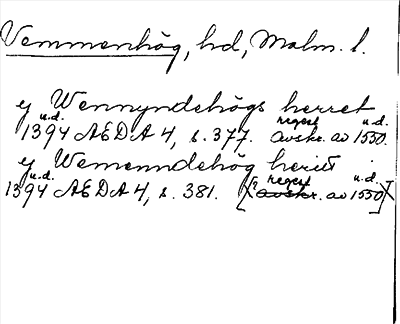 Vemmenhög, hd, Malm. l.
ej Wennyndehögs herret
u.d. regest u.d.
1394 AEDA 4, s. 377. avskr. av 1550.
ej Wemenndehög herit
u.d. regest u.d.
1394 AEDA 4, s. 381. [? avskr. av 1550]